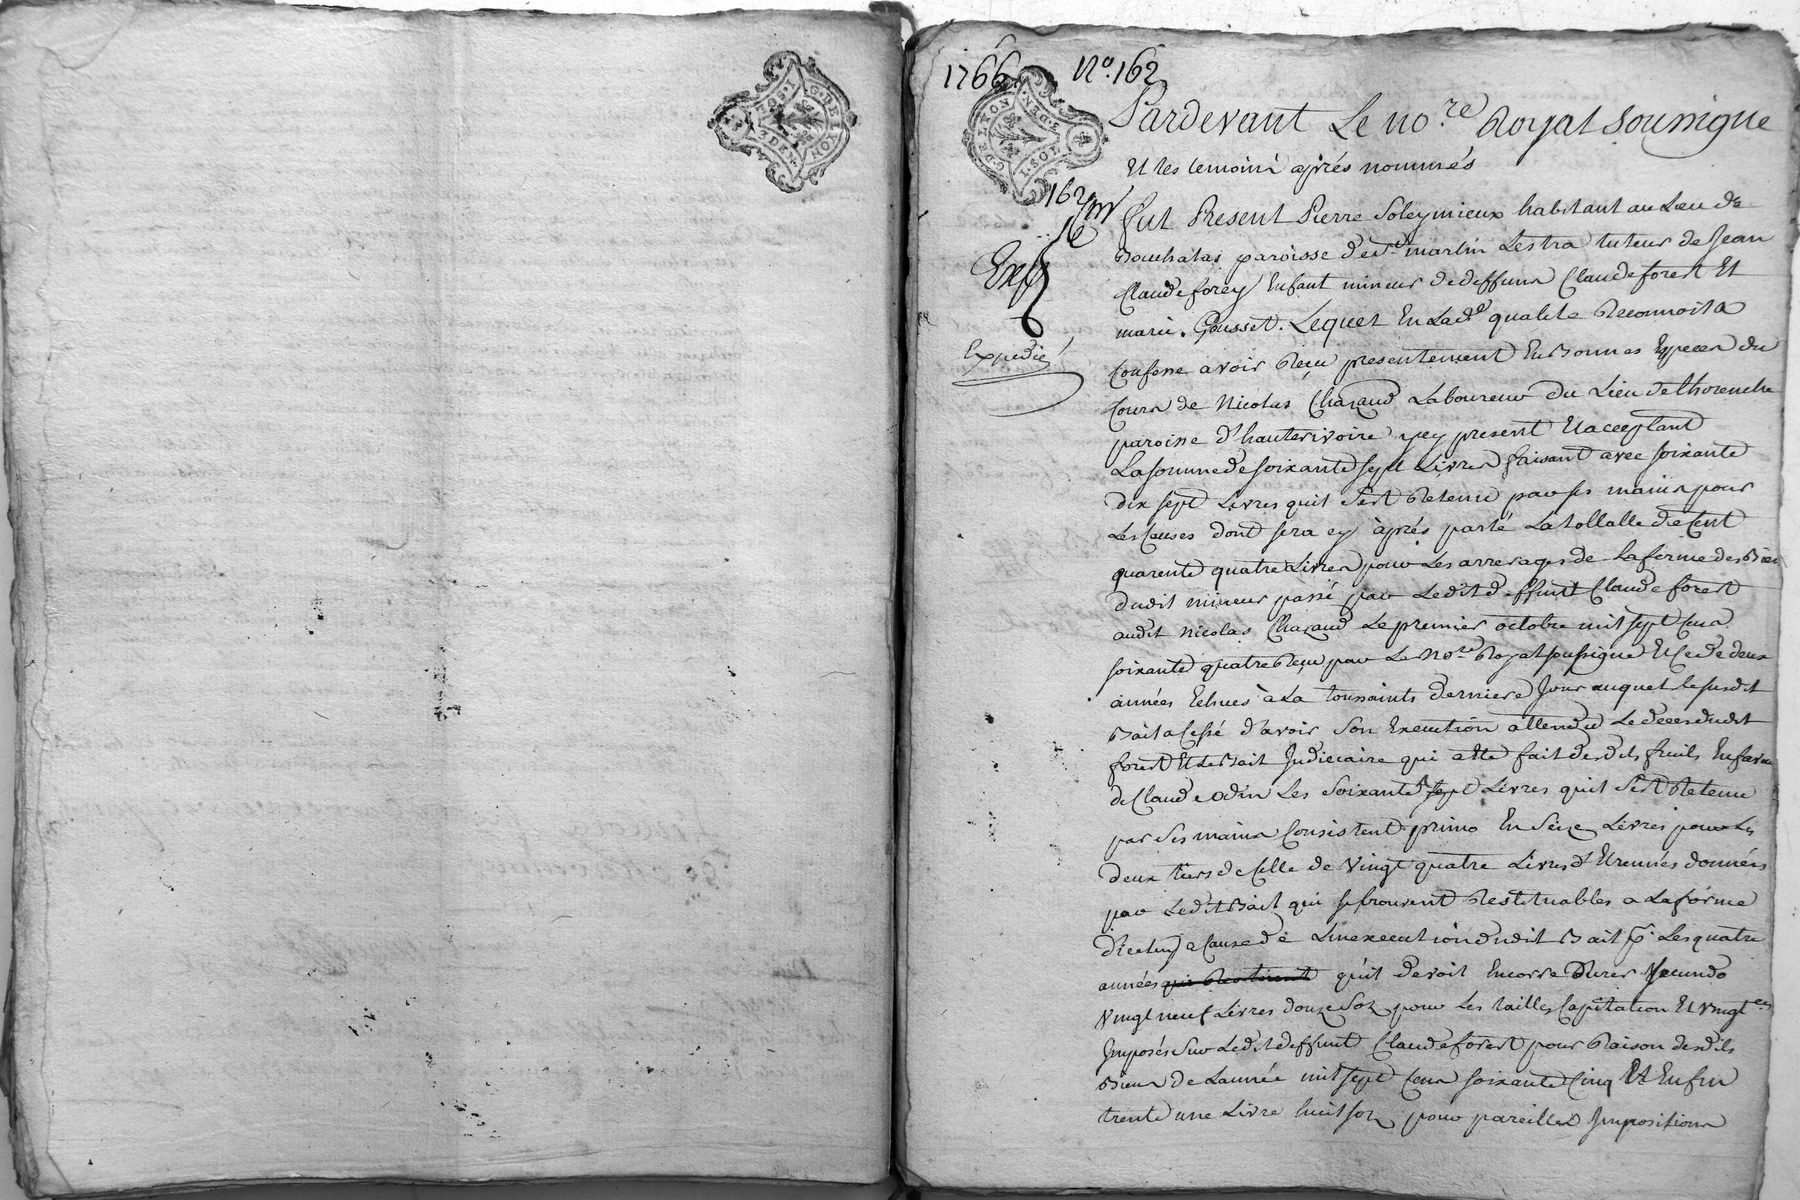 G. DE LYON
1766
No. 162
G. DE LYON
1. SOL
Pardevant Le no.re Royal soussigne
Et les temoins après nommés
162
Fut Present Pierre Soleymieux habitant au Lieu de
paroisse de st. martin Lestra tuteur de Jean
Claude forey Enfant mineur de deffunx Claude forest Et
marie Gousset. Lequel En Lad.e qualite Reconnoit &
Confesse avoir Reçu presentement En Bonnes Especes du
Cours de Nicolas Charaud Laboureur du Lieu de thorenche
paroisse d'hauterivoire ycy present Et acceptant
La somme de soixante sept Livres faisant avec soixante
dix sept Livres quil s'est Retenu par ses mains pour
Les Causes dont sera cy àprés parlé La tottalle de Cent
quarente quatre Livres pour Les arrerages de La ferme des Biens
dudit mineur passé par Ledit deffunt Claude forest
audit Nicolas Charaud Le premier octobre mil sept Cens
soixante quatre Reçu par Le No.re Royal soussigne Et Ce de deux
années Echues à La toussaints derniere Jour auquel le susdit
Bail a Cessé d'avoir son Execution attendu Le deces dudit
forest Et Le Bail Judiciaire qui a Eté fait desdits fruits En faveur
de Claude odin Les soixante dix sept Livres quil s'est Retenu
par ses mains Consistent primo En Seize Livres pour Les
deux tiers de Celle de vingt quatre Livres d'Etrennes données
par Ledit Bail qui se trouvent Restituables a La forme
d'icelluy a Cause de L'inexecution dudit Bail p.r Les quatre
années qu'il devoit Encorre Durer Secundo
Vingt neuf Livres douze Sols pour Les tailles Capitation Et vingt.es
Imposés sur Ledit deffunt Claude forest pour Raison desdits
Biens de L'année mil sept Cens soixante Cinq Et Enfin
trente une Livre huit sols pour pareilles Impositions
Expedié